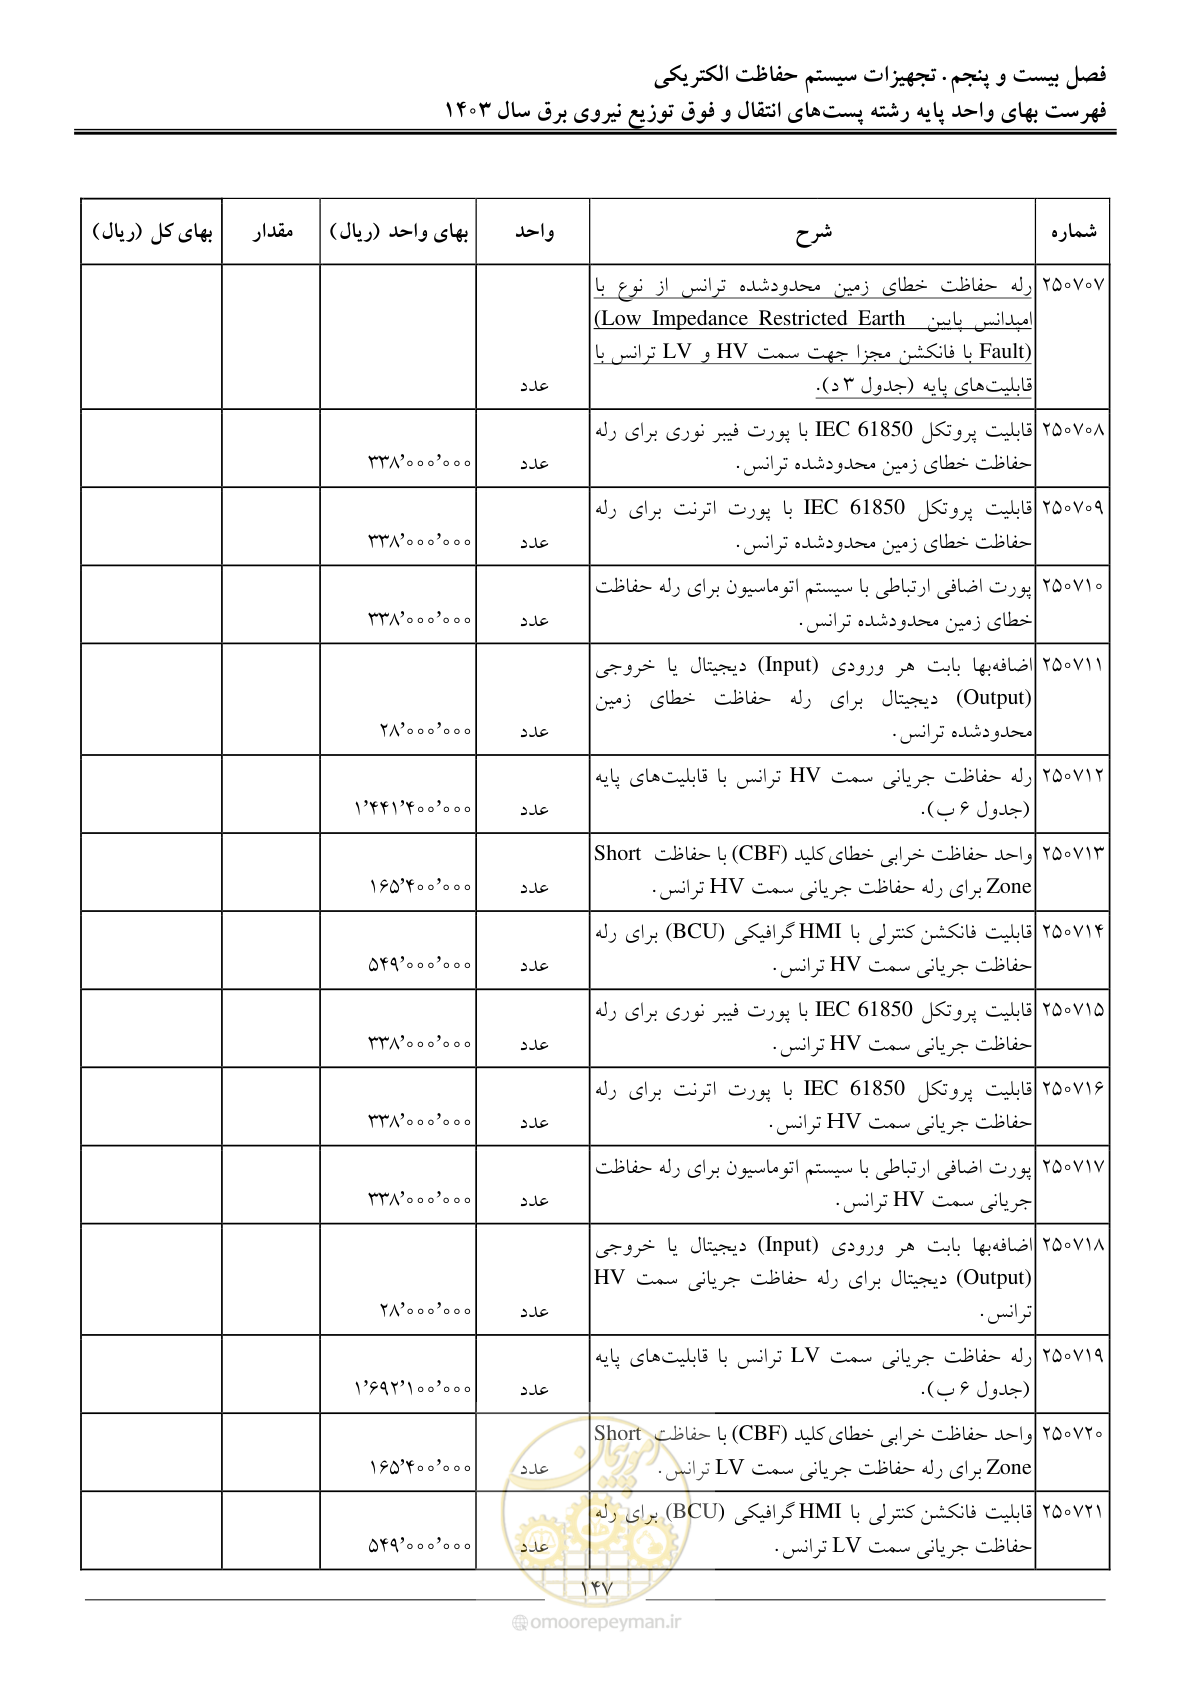 فصل بیست و پنجم. تجهیزات سیستم حفاظت الکتریکی
فهرست بهای واحد پایه رشته پست‌های انتقال و فوق توزیع نیروی برق سال ۱۴۰۳
شماره شرح واحد بهای واحد (ریال) مقدار بهای کل (ریال)
۲۵۰۷۰۷ رله حفاظت خطای زمین محدودشده ترانس از نوع با
امپدانس پایین (Low Impedance Restricted Earth
Fault) با فانکشن مجزا جهت سمت HV و LV ترانس با
قابلیت‌های پایه (جدول ۳ د). عدد
۲۵۰۷۰۸ قابلیت پروتکل IEC 61850 با پورت فیبر نوری برای رله
حفاظت خطای زمین محدودشده ترانس. عدد ۳۳۸٬۰۰۰٬۰۰۰
۲۵۰۷۰۹ قابلیت پروتکل IEC 61850 با پورت اترنت برای رله
حفاظت خطای زمین محدودشده ترانس. عدد ۳۳۸٬۰۰۰٬۰۰۰
۲۵۰۷۱۰ پورت اضافی ارتباطی با سیستم اتوماسیون برای رله حفاظت
خطای زمین محدودشده ترانس. عدد ۳۳۸٬۰۰۰٬۰۰۰
۲۵۰۷۱۱ اضافه‌بها بابت هر ورودی (Input) دیجیتال یا خروجی
(Output) دیجیتال برای رله حفاظت خطای زمین
محدودشده ترانس. عدد ۲۸٬۰۰۰٬۰۰۰
۲۵۰۷۱۲ رله حفاظت جریانی سمت HV ترانس با قابلیت‌های پایه
(جدول ۶ ب). عدد ۱٬۴۴۱٬۴۰۰٬۰۰۰
۲۵۰۷۱۳ واحد حفاظت خرابی خطای کلید (CBF) با حفاظت Short
Zone برای رله حفاظت جریانی سمت HV ترانس. عدد ۱۶۵٬۴۰۰٬۰۰۰
۲۵۰۷۱۴ قابلیت فانکشن کنترلی با HMI گرافیکی (BCU) برای رله
حفاظت جریانی سمت HV ترانس. عدد ۵۴۹٬۰۰۰٬۰۰۰
۲۵۰۷۱۵ قابلیت پروتکل IEC 61850 با پورت فیبر نوری برای رله
حفاظت جریانی سمت HV ترانس. عدد ۳۳۸٬۰۰۰٬۰۰۰
۲۵۰۷۱۶ قابلیت پروتکل IEC 61850 با پورت اترنت برای رله
حفاظت جریانی سمت HV ترانس. عدد ۳۳۸٬۰۰۰٬۰۰۰
۲۵۰۷۱۷ پورت اضافی ارتباطی با سیستم اتوماسیون برای رله حفاظت
جریانی سمت HV ترانس. عدد ۳۳۸٬۰۰۰٬۰۰۰
۲۵۰۷۱۸ اضافه‌بها بابت هر ورودی (Input) دیجیتال یا خروجی
(Output) دیجیتال برای رله حفاظت جریانی سمت HV
ترانس. عدد ۲۸٬۰۰۰٬۰۰۰
۲۵۰۷۱۹ رله حفاظت جریانی سمت LV ترانس با قابلیت‌های پایه
(جدول ۶ ب). عدد ۱٬۶۹۲٬۱۰۰٬۰۰۰
۲۵۰۷۲۰ واحد حفاظت خرابی خطای کلید (CBF) با حفاظت Short
Zone برای رله حفاظت جریانی سمت LV ترانس. عدد ۱۶۵٬۴۰۰٬۰۰۰
۲۵۰۷۲۱ قابلیت فانکشن کنترلی با HMI گرافیکی (BCU) برای رله
حفاظت جریانی سمت LV ترانس. عدد ۵۴۹٬۰۰۰٬۰۰۰
امور پیمان
۱۴۷
omoorepeyman.ir